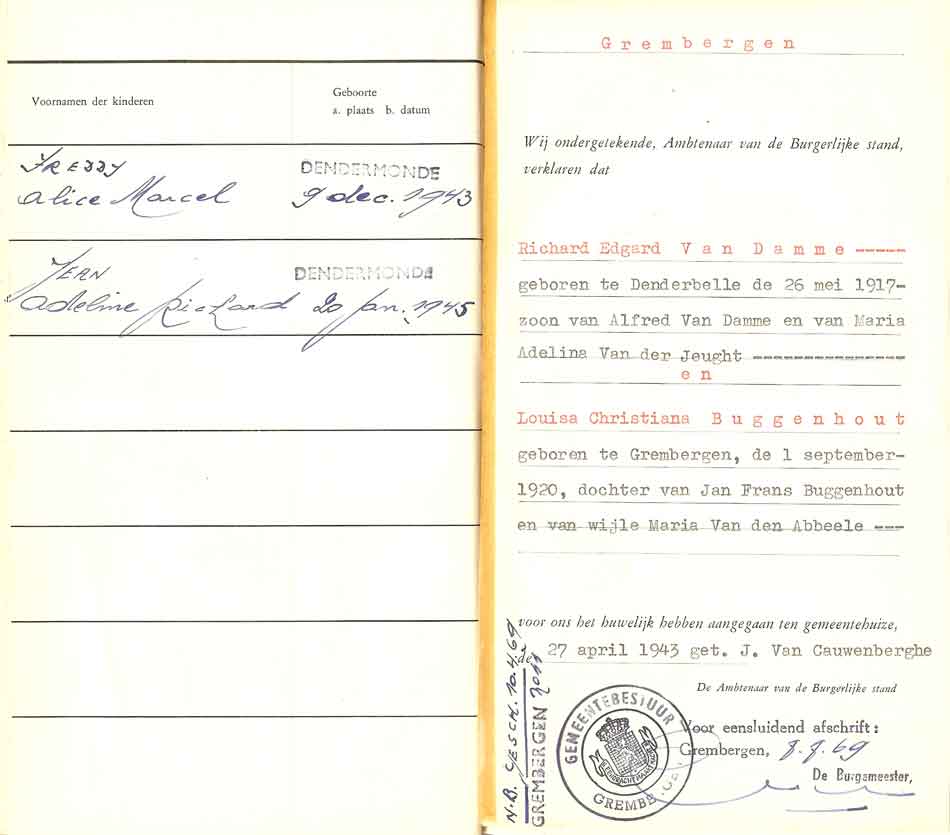 Voornamen der kinderen
Geboorte
a. plaats b. datum
FREDDY
DENDERMONDE
alice Marcel
9 dec. 1943
DENDERMONDE
adeline Richard
20 jan. 1945
Grembergen
Wij ondergetekende, Ambtenaar van de Burgerlijke stand,
verklaren dat
Richard Edgard Van Damme ------
geboren te Denderbelle de 26 mei 1917-
zoon van Alfred Van Damme en van Maria
Adelina Van der Jeught ------------------
en
Louisa Christiana Buggenhout
geboren te Grembergen, de 1 september-
1920, dochter van Jan Frans Buggenhout
en van wijle Maria Van den Abbeele ---
voor ons het huwelijk hebben aangegaan ten gemeentehuize,
de 27 april 1943 get. J. Van Cauwenberghe
De Ambtenaar van de Burgerlijke stand
Voor eensluidend afschrift :
Grembergen, 8.8.69
De Burgemeester,
GEMEENTEBESTUUR
GREMBE
N.B. GESCH. 10.4.69
GREMBERGEN